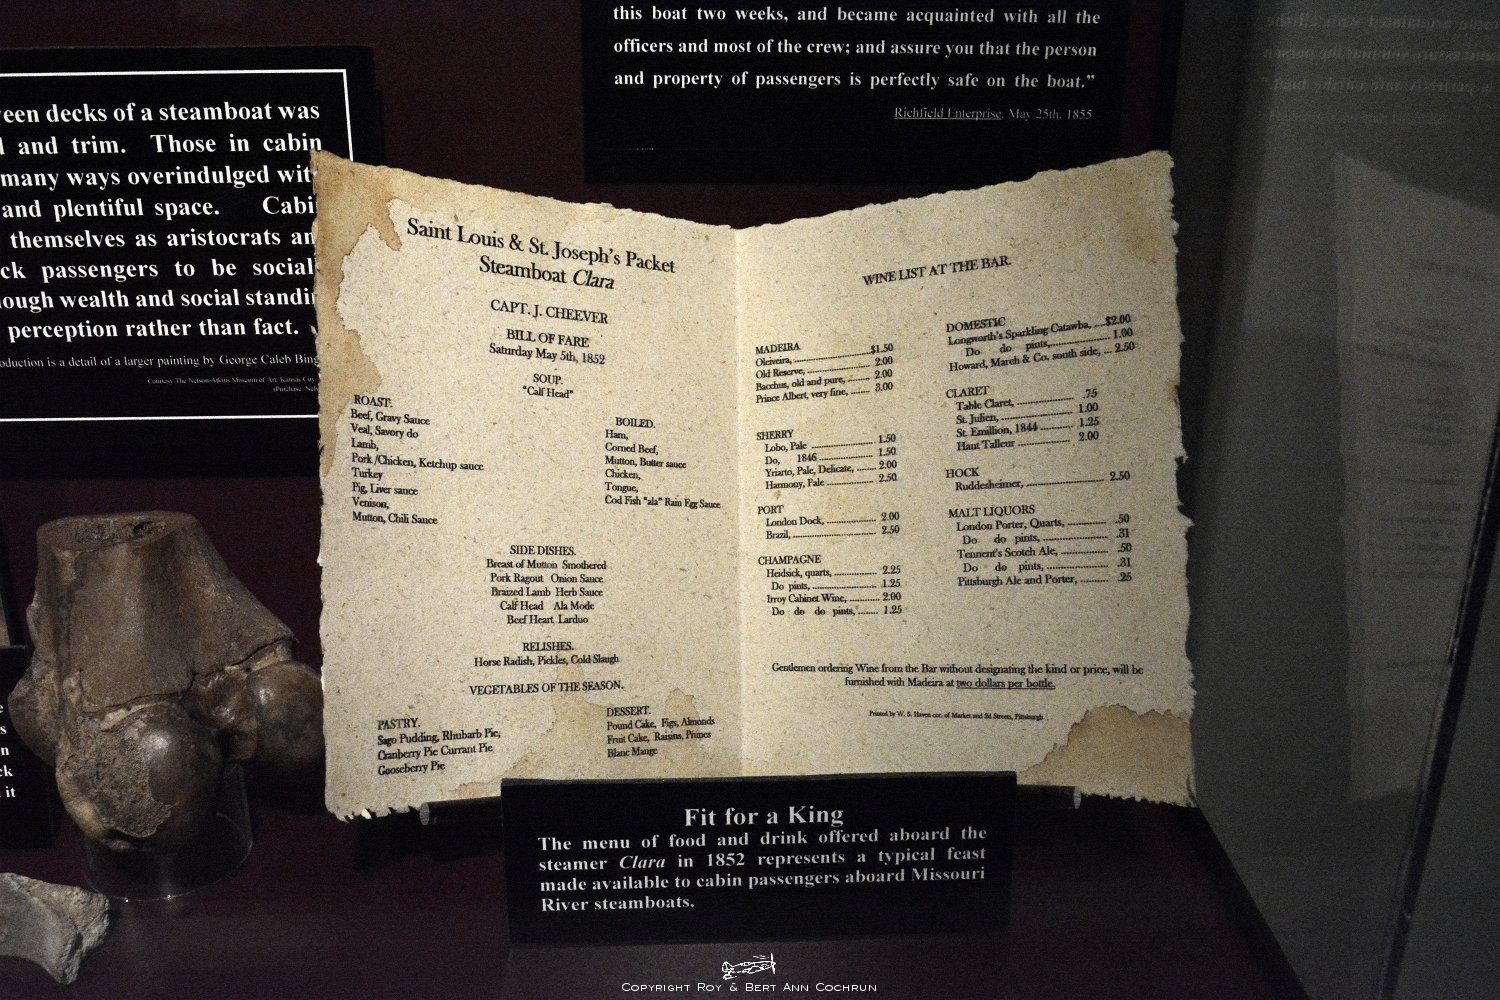 this boat two weeks, and became acquainted with all the
officers and most of the crew; and assure you that the person
and property of passengers is perfectly safe on the boat."
Richfield Enterprise, May 25th, 1855
decks of a steamboat was
and trim. Those in cabin
many ways overindulged
and plentiful space.
themselves as aristocrats
passengers to be
wealth and social
perception rather than fact.
is a detail of a larger painting by George Caleb
Saint Louis & St. Joseph's Packet
Steamboat Clara
CAPT. J. CHEEVER
BILL OF FARE
Saturday May 5th, 1852
SOUP.
"Calf Head"
ROAST.
Beef, Gravy Sauce
Veal, Savory do
Lamb,
Pork /Chicken, Ketchup sauce
Turkey
Pig, Liver sauce
Venison,
Mutton, Chili Sauce
BOILED.
Ham,
Corned Beef,
Mutton, Butter sauce
Chicken,
Tongue,
Cod Fish "ala" Rain Egg Sauce
SIDE DISHES.
Breast of Mutton Smothered
Pork Ragout Onion Sauce
Braized Lamb Herb Sauce
Calf Head Ala Mode
Beef Heart Larduo
RELISHES.
Horse Radish, Pickles, Cold Slaugh
VEGETABLES OF THE SEASON.
PASTRY.
Sago Pudding, Rhubarb Pie,
Cranberry Pie Currant Pie
Gooseberry Pie
DESSERT.
Pound Cake, Figs, Almonds
Fruit Cake, Raisins, Prunes
Blanc Mange
WINE LIST AT THE BAR.
MADEIRA
Oleiveira, $1.50
Old Reserve, 2.00
Bacchus, old and pure, 2.00
Prince Albert, very fine, 3.00
SHERRY
Lobo, Pale 1.50
Do, 1846 1.50
Yriarto, Pale, Delicate, 2.00
Harmony, Pale 2.50
PORT
London Dock, 2.00
Brazil, 2.50
CHAMPAGNE
Heidsick, quarts, 2.25
Do pints, 1.25
Irroy Cabinet Wine, 2.00
Do do do pints, 1.25
DOMESTIC
Longworth's Sparkling Catawba, $2.00
Do do pints, 1.00
Howard, March & Co. south side, ... 2.50
CLARET
Table Claret, .75
St. Julien, 1.00
St. Emillion, 1844 1.25
Haut Talleur 2.00
HOCK
Ruddesheimer, 2.50
MALT LIQUORS
London Porter, Quarts, .50
Do do pints, .31
Tennent's Scotch Ale, .50
Do do pints, .31
Pittsburgh Ale and Porter, .25
Gentlemen ordering Wine from the Bar without designating the kind or price, will be
furnished with Madeira at two dollars per bottle.
Printed by W. S. Haven cor. of Market and 2d Streets, Pittsburgh
Fit for a King
The menu of food and drink offered aboard the
steamer Clara in 1852 represents a typical feast
made available to cabin passengers aboard Missouri
River steamboats.
it
Copyright Roy & Bert Ann Cochrun